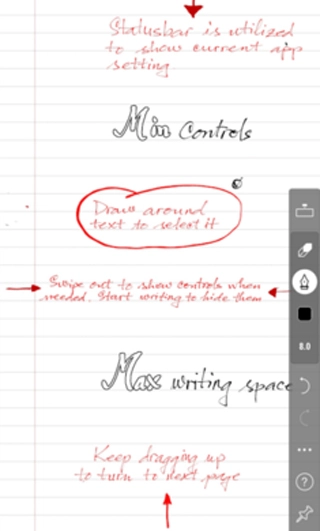 Statusbar is utilized
to show current app
setting
Min Controls
Draw around
text to select it
Swipe out to show controls when
needed. Start writing to hide them
Max writing space
8.0
Keep dragging up
to turn to next page
?